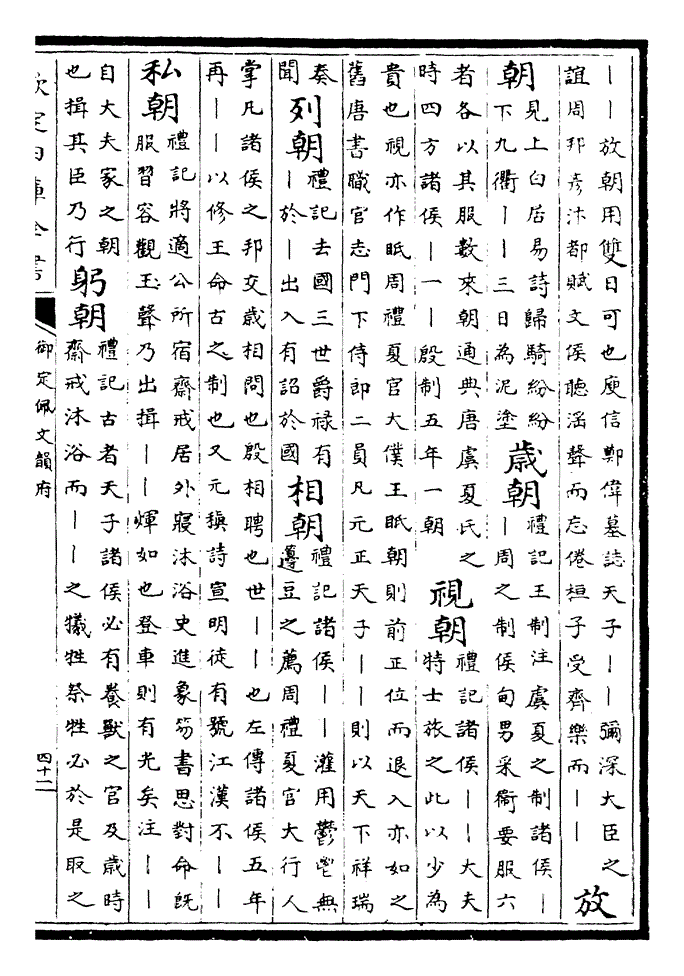 丨丨放朝用雙日可也庾信鄭偉墓誌天子丨丨彌深大臣之
誼周邦彥汴都賦文侯聽滛聲而忘倦桓子受齊樂而丨丨
放
朝
見上白居易詩歸騎紛紛
下九衢丨丨三日為泥塗
歲朝
禮記王制注虞夏之制諸侯丨
丨周之制侯甸男采衞要服六
者各以其服數來朝通典唐虞夏氏之
時四方諸侯丨一丨殷制五年一朝
視朝
禮記諸侯丨丨大夫
特士旅之此以少為
貴也視亦作眡周禮夏官大僕王眡朝則前正位而退入亦如之
舊唐書職官志門下侍郎二員凡元正天子丨丨則以天下祥瑞
奏
聞
列朝
禮記去國三世爵祿有
丨於丨出入有詔於國
相朝
禮記諸侯丨丨灌用鬱鬯無
籩豆之薦周禮夏官大行人
掌凡諸侯之邦交歲相問也殷相聘也世丨丨也左傳諸侯五年
再丨丨以修王命古之制也又元稹詩宣明徒有號江漢不丨丨
私朝
禮記將適公所宿齋戒居外寢沐浴史進象笏書思對命既
服習容觀玉聲乃出揖丨丨煇如也登車則有光矣注丨丨
自大夫家之朝
也揖其臣乃行
躬朝
禮記古者天子諸侯必有養獸之官及歲時
齋戒沐浴而丨丨之犧牲祭牲必於是取之
欽定四庫全書
御定佩文韻府
四十二